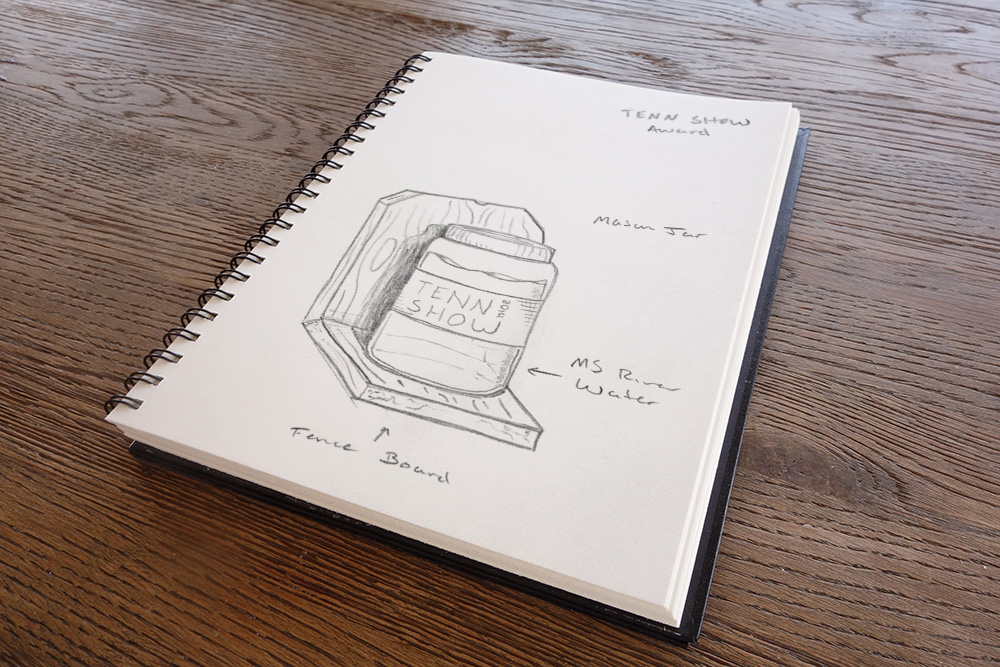 TENN SHOW
Award
Mason Jar
TENN
SHOW
MS River
Water
Fence Board